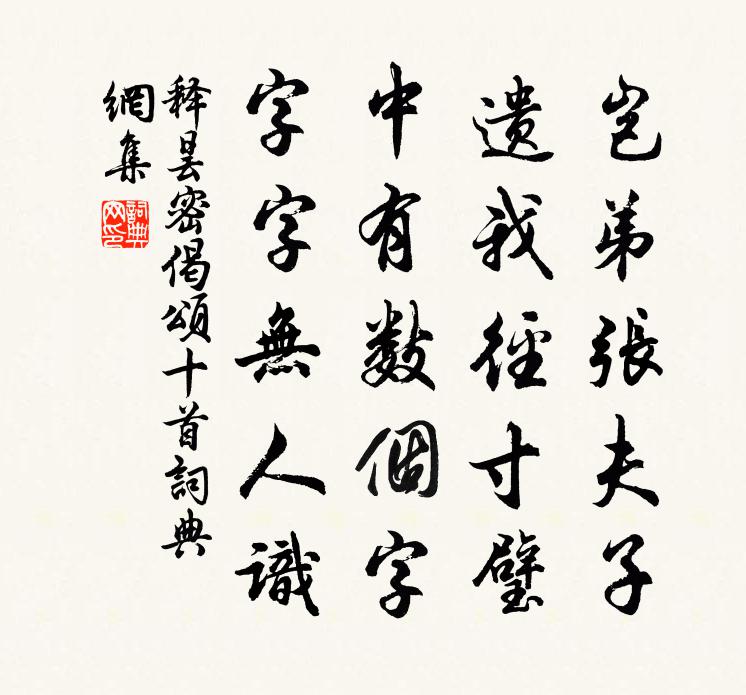 豈弟張夫子
遺我徑寸璧
中有數個字
字字無人識
释曇密偈頌十首詞典
網集
詞典網印